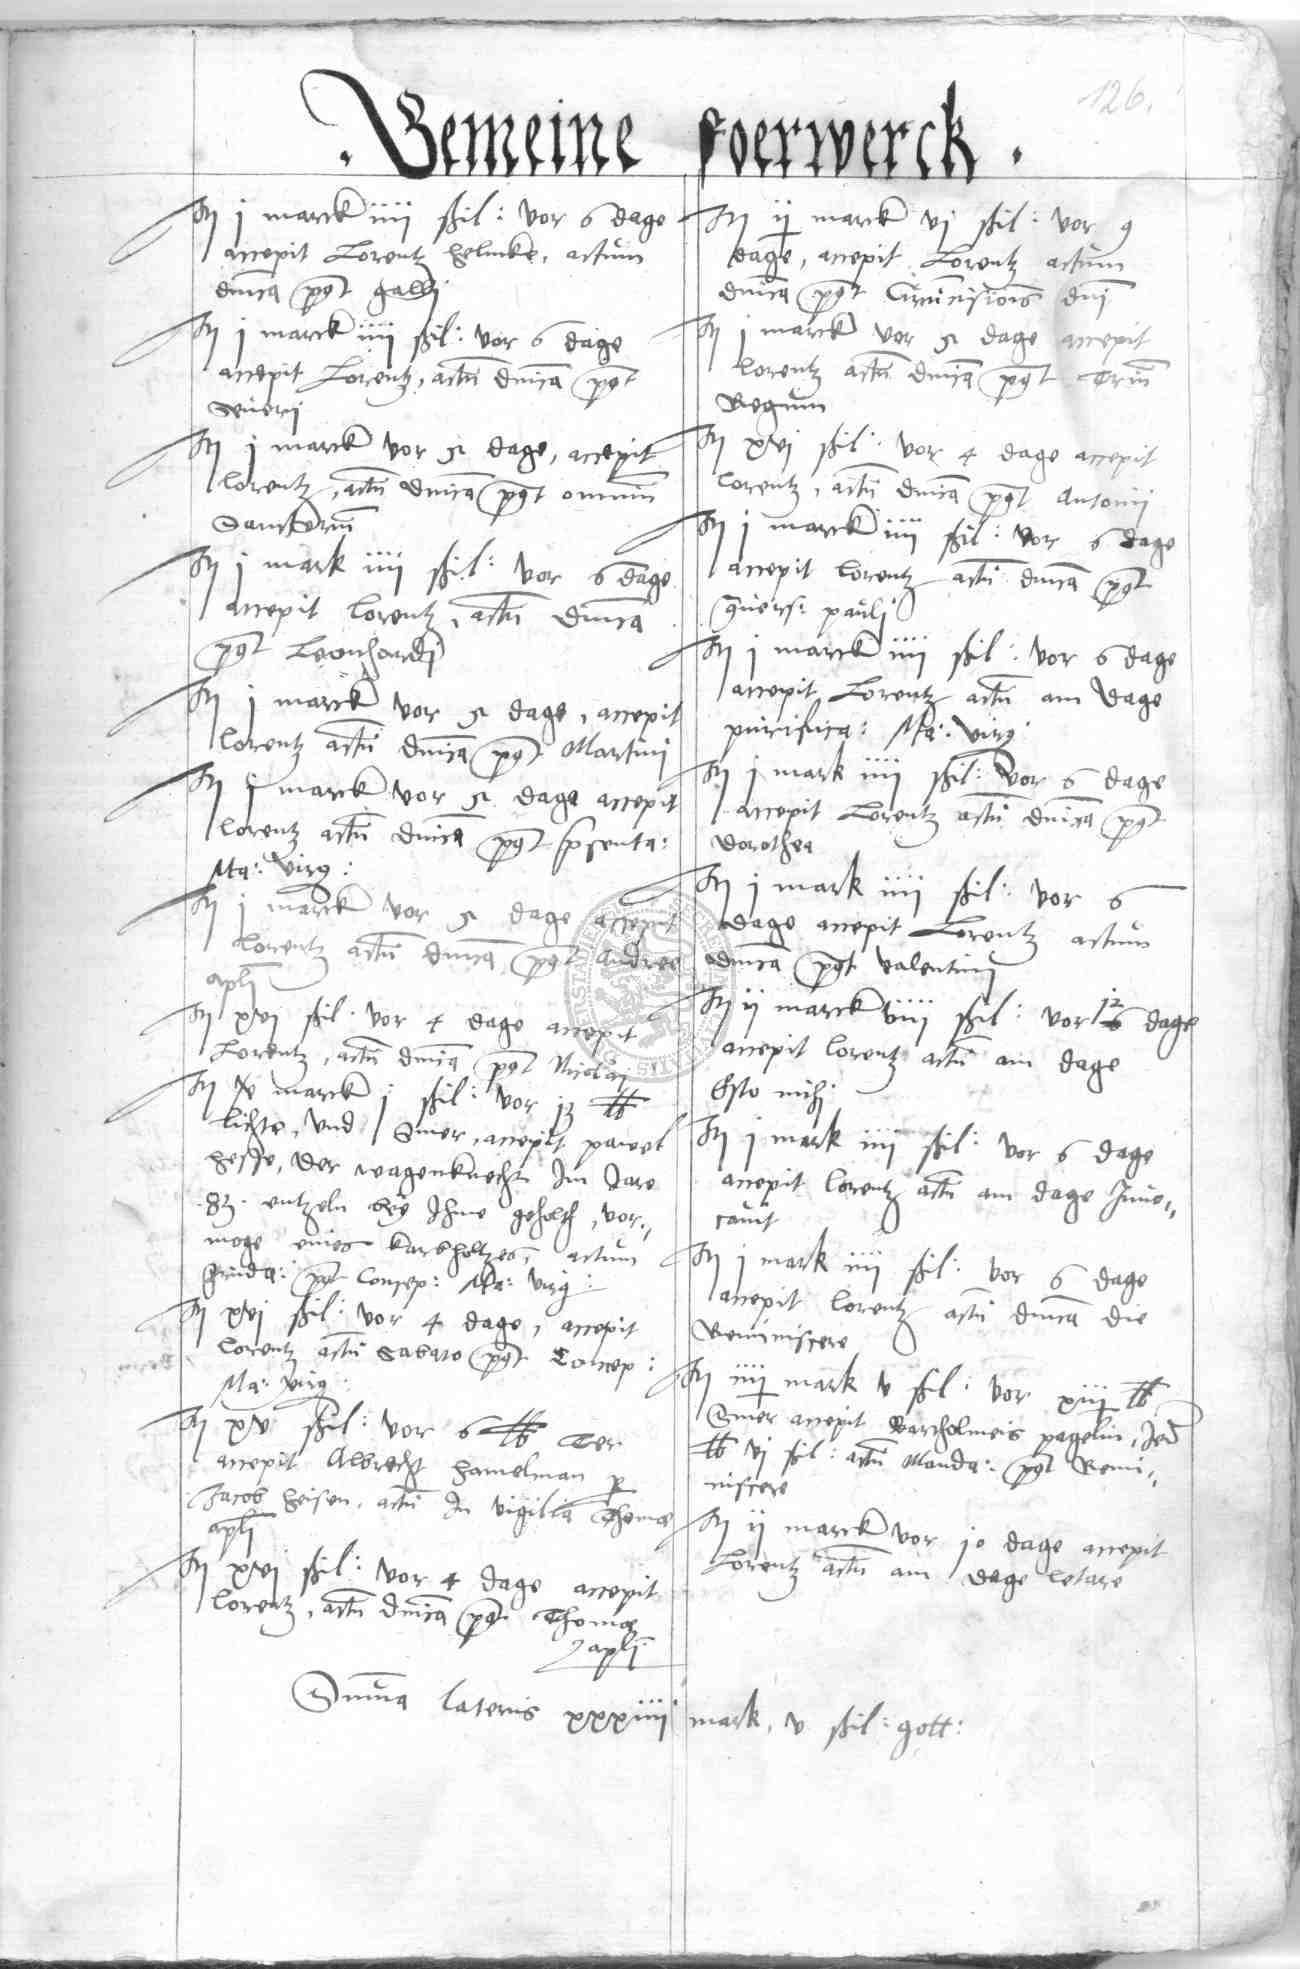 126.
. Gemeine Foerwerck .
It j marck iiij ßil: vor 6 dage
accepit Lorentz helmke, actum
dnica post galli
It j marck iiij ßil: vor 6 dage
accepit Lorentz, actu dnica post
Severi
It j marck vor 5 dage, accepit
lorentz, actu dnica post omniu
Sanctoru
It j mark iiij ßil: vor 6 dage
accepit lorentz, actu dnica
post Leonhardi
It j marck vor 5 dage, accepit
lorentz actu dnica post Martini
It j marck vor 5 dage accepit
lorentz actu dnica post psenta:
Ma: virg:
It j marck vor 5 dage accepit
lorentz actu dnica post Andree
apli
It xvj ßil: vor 4 dage accepit
Lorentz, actu dnica post Nicolai
It marck j ßil: vor
lichte, und Smer, accepit pawel
hesse, der wagenknecht Im Jare
entzeln bey Ihme geholth, vor„
moge eines karbholtzes, actum
post Concep: Ma: virg:
It xvj ßil: vor 4 dage, accepit
lorentz actu Sabato post Concep:
Ma: virg:
It xv ßil: vor 6 lb Ter
accepit Albrecht hamelman p
Jacob heisen, actu In vigilia Thome
apli
It xvj ßil: vor 4 dage accepit
lorentz, actu dnica post Thome
apli
It ij marck vj ßil: vor 9
dage, accepit Lorentz actum
dnica post Circumcisionis dni
It j marck vor 5 dage accepit
lorentz actu dnica post Triu
Regum
It xvj ßil: vor 4 dage accepit
lorentz, actu dnica post Antonij
It j marck iiij ßil: vor 6 dage
accepit lorentz actu dnica post
9vers: pauli
It j marck iiij ßil: vor 6 dage
accepit Lorentz actu am dage
purifica: Ma: virg:
It j mark iiij ßil: vor 6 dage
accepit Lorentz actu dnica post
dorothea
It j mark iiij ßil: vor 6
dage accepit Lorentz actum
dnica post valentini
It ij marck viiij ßil: vor 12 dage
accepit lorentz actu am dage
Esto mihi
It j mark iiij ßil: vor 6 dage
accepit lorentz actu am dage Invo„
cavit
It j mark iiij ßil: vor 6 dage
accepit lorentz actu dnica die
Reminiscere
It iiij mark v ßil: vor xiiij lb
Smer accepit Bartholmeis pagelin, Jed
lb vj ßil: actu Manda: post Remi„
niscere
It ij marck vor 10 dage accepit
Lorentz actu am dage letare
Summa lateris xxxiiij mark, v ßil: gott: